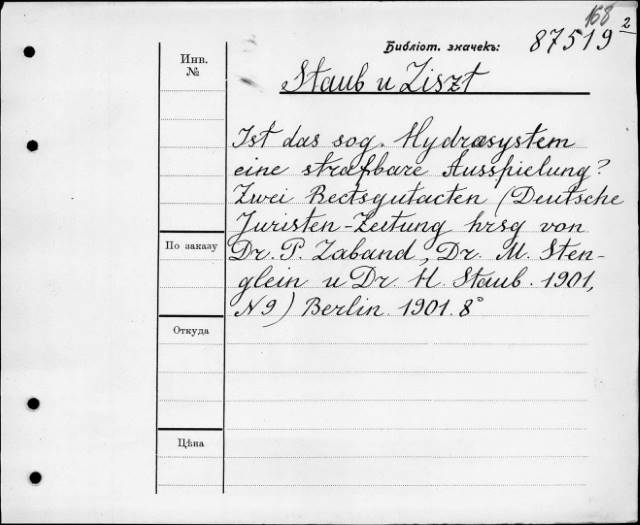 168
2
Библіот. значекъ: 87519
Инв.
№
Staub u Liszt
Ist das sog. Hydrasystem
eine strafbare Ausspielung?
Zwei Rectsgutacten (Deutsche
Juristen-Zeitung hrsg von
По заказу
Dr. P. Laband, Dr. M. Sten-
glein u Dr. H. Staub. 1901,
N9) Berlin. 1901. 8°
Откуда
Цѣна